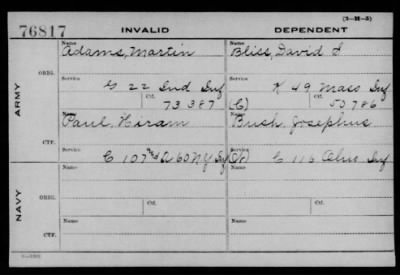 (3-H-5)
76817 INVALID DEPENDENT
Name Name
Adams, Martin Bliss, David
ARMY
ORIG.
Service Service
G 22 Ind Inf K 49 Mass Inf
Ctf. Ctf.
73387 (C) 50786
Name Name
Paul, Hiram Bush, Josephus
CTF.
Service Service
C 107 & 60 NY Inf C 116 Ohio Inf
NAVY
Name Name
ORIG.
Service Service
Name Name
CTF.
Service Service